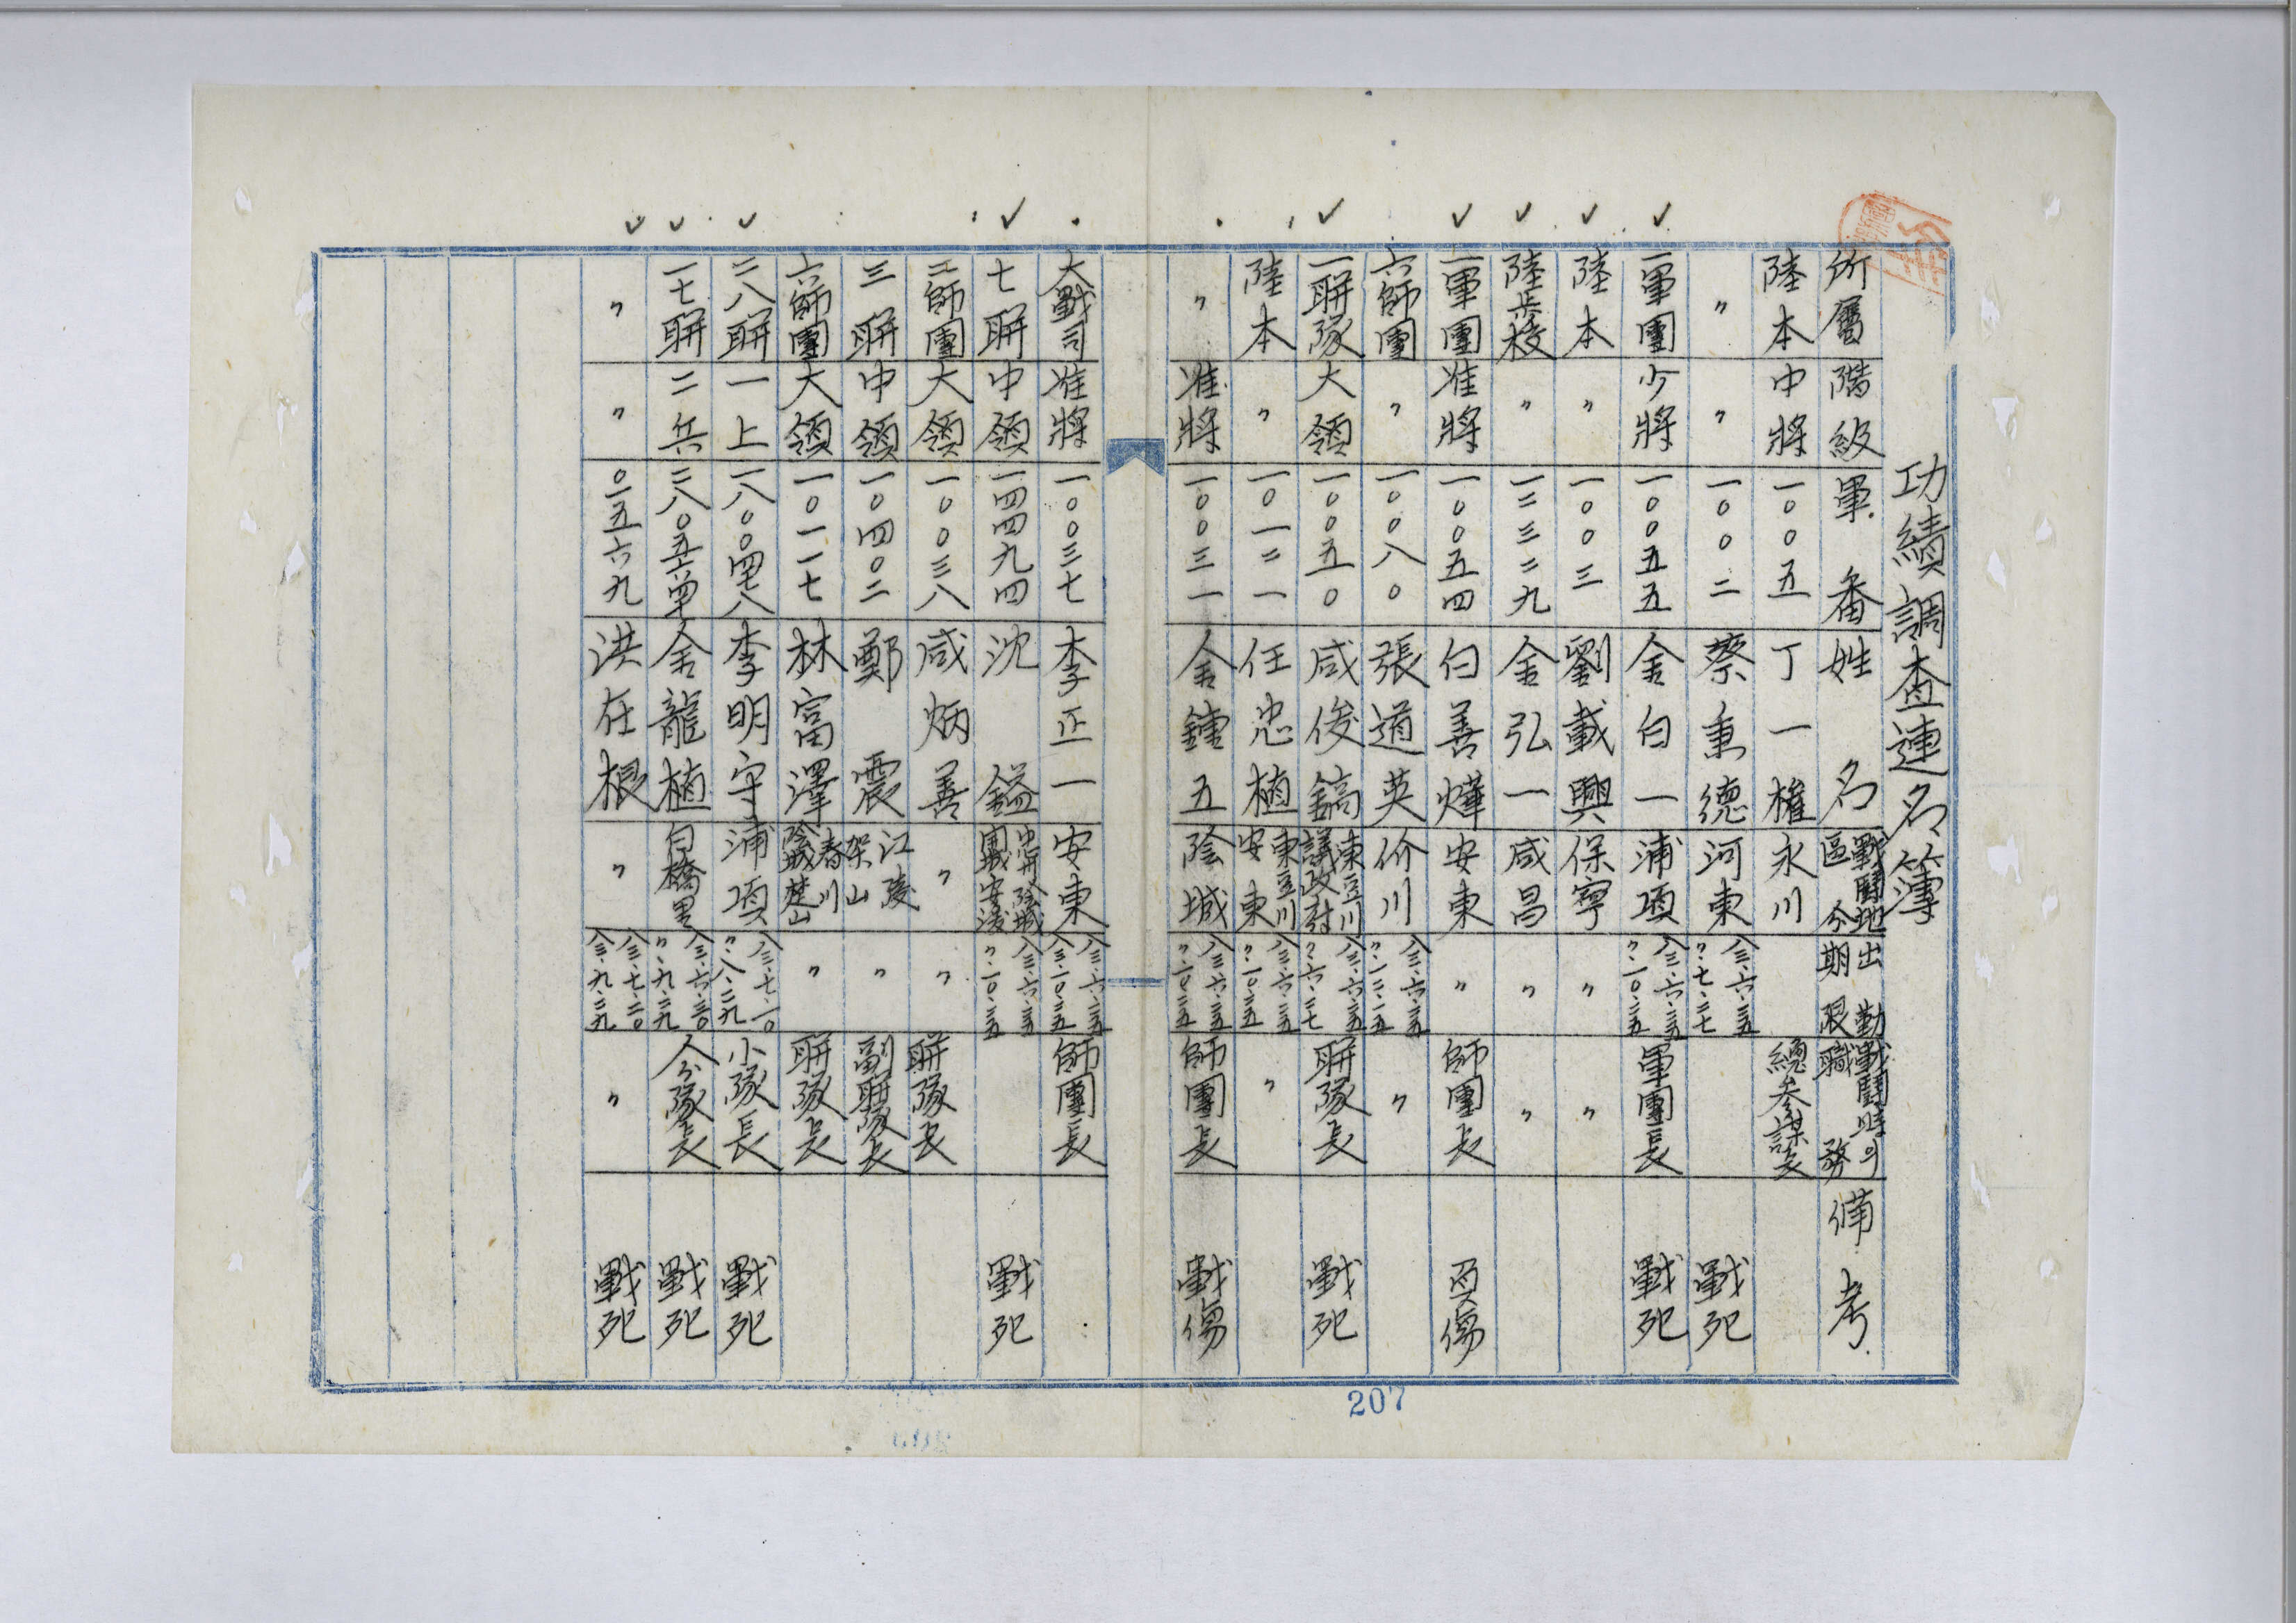 功績調査連名簿
所屬 階級 軍番 姓名 戰鬪地區分 出勤期限 戰鬪時의職務 備考
陸本 中將 一〇〇五 丁一權 永川 總參謀長
〃 〃 一〇〇二 蔡秉德 河東 八三.六.二五 〃.七.二七 戰死
一軍團 少將 一〇〇五五 金白一 浦項 八三.六.二五 〃.一〇.二五 軍團長 戰死
陸本 〃 一〇〇三 劉載興 保寧 〃 〃
陸兵校 〃 一二三二九 金弘一 咸昌 〃 〃
二軍團 准將 一〇〇五四 白善燁 安東 〃 師團長 負傷
六師團 〃 一〇〇八〇 張道英 价川 八三.六.二五 〃.一二.一五 〃
一聯隊 大領 一〇〇五〇 咸俊鎬 東豆川 議政府 八三.六.二五 〃.六.二七 聯隊長 戰死
陸本 〃 一〇一二一 任忠植 東豆川 安東 八三.六.二五 〃.一〇.二五 〃
〃 准將 一〇〇三一 金鍾五 陰城 八三.六.二五 〃.一〇.二五 師團長 戰傷
大戰司 准將 一〇〇三七 李正一 安東 八三.六.二五 八三.一〇.二五 師團長
七聯 中領 一四四九四 沈鎰 八三.六.二五 〃.一〇.二五 戰死
二師團 大領 一〇〇三八 咸炳善 〃 〃 聯隊長
三聯 中領 一〇四〇二 鄭震 江陵 架山 〃 副聯隊長
六師團 大領 一〇一一七 林富澤 春川 陰城 楚山 〃 聯隊長
二八聯 一上 一八〇〇四七八 李明守 浦項 八三.七.一〇 〃.八.二九 小隊長 戰死
一七聯 二兵 金龍植 白橋里 八三.六.三〇 〃.九.二九 分隊長 戰死
〃 〃 〇一五六九 洪在根 〃 八三.七.二〇 八三.九.二九 〃 戰死
207